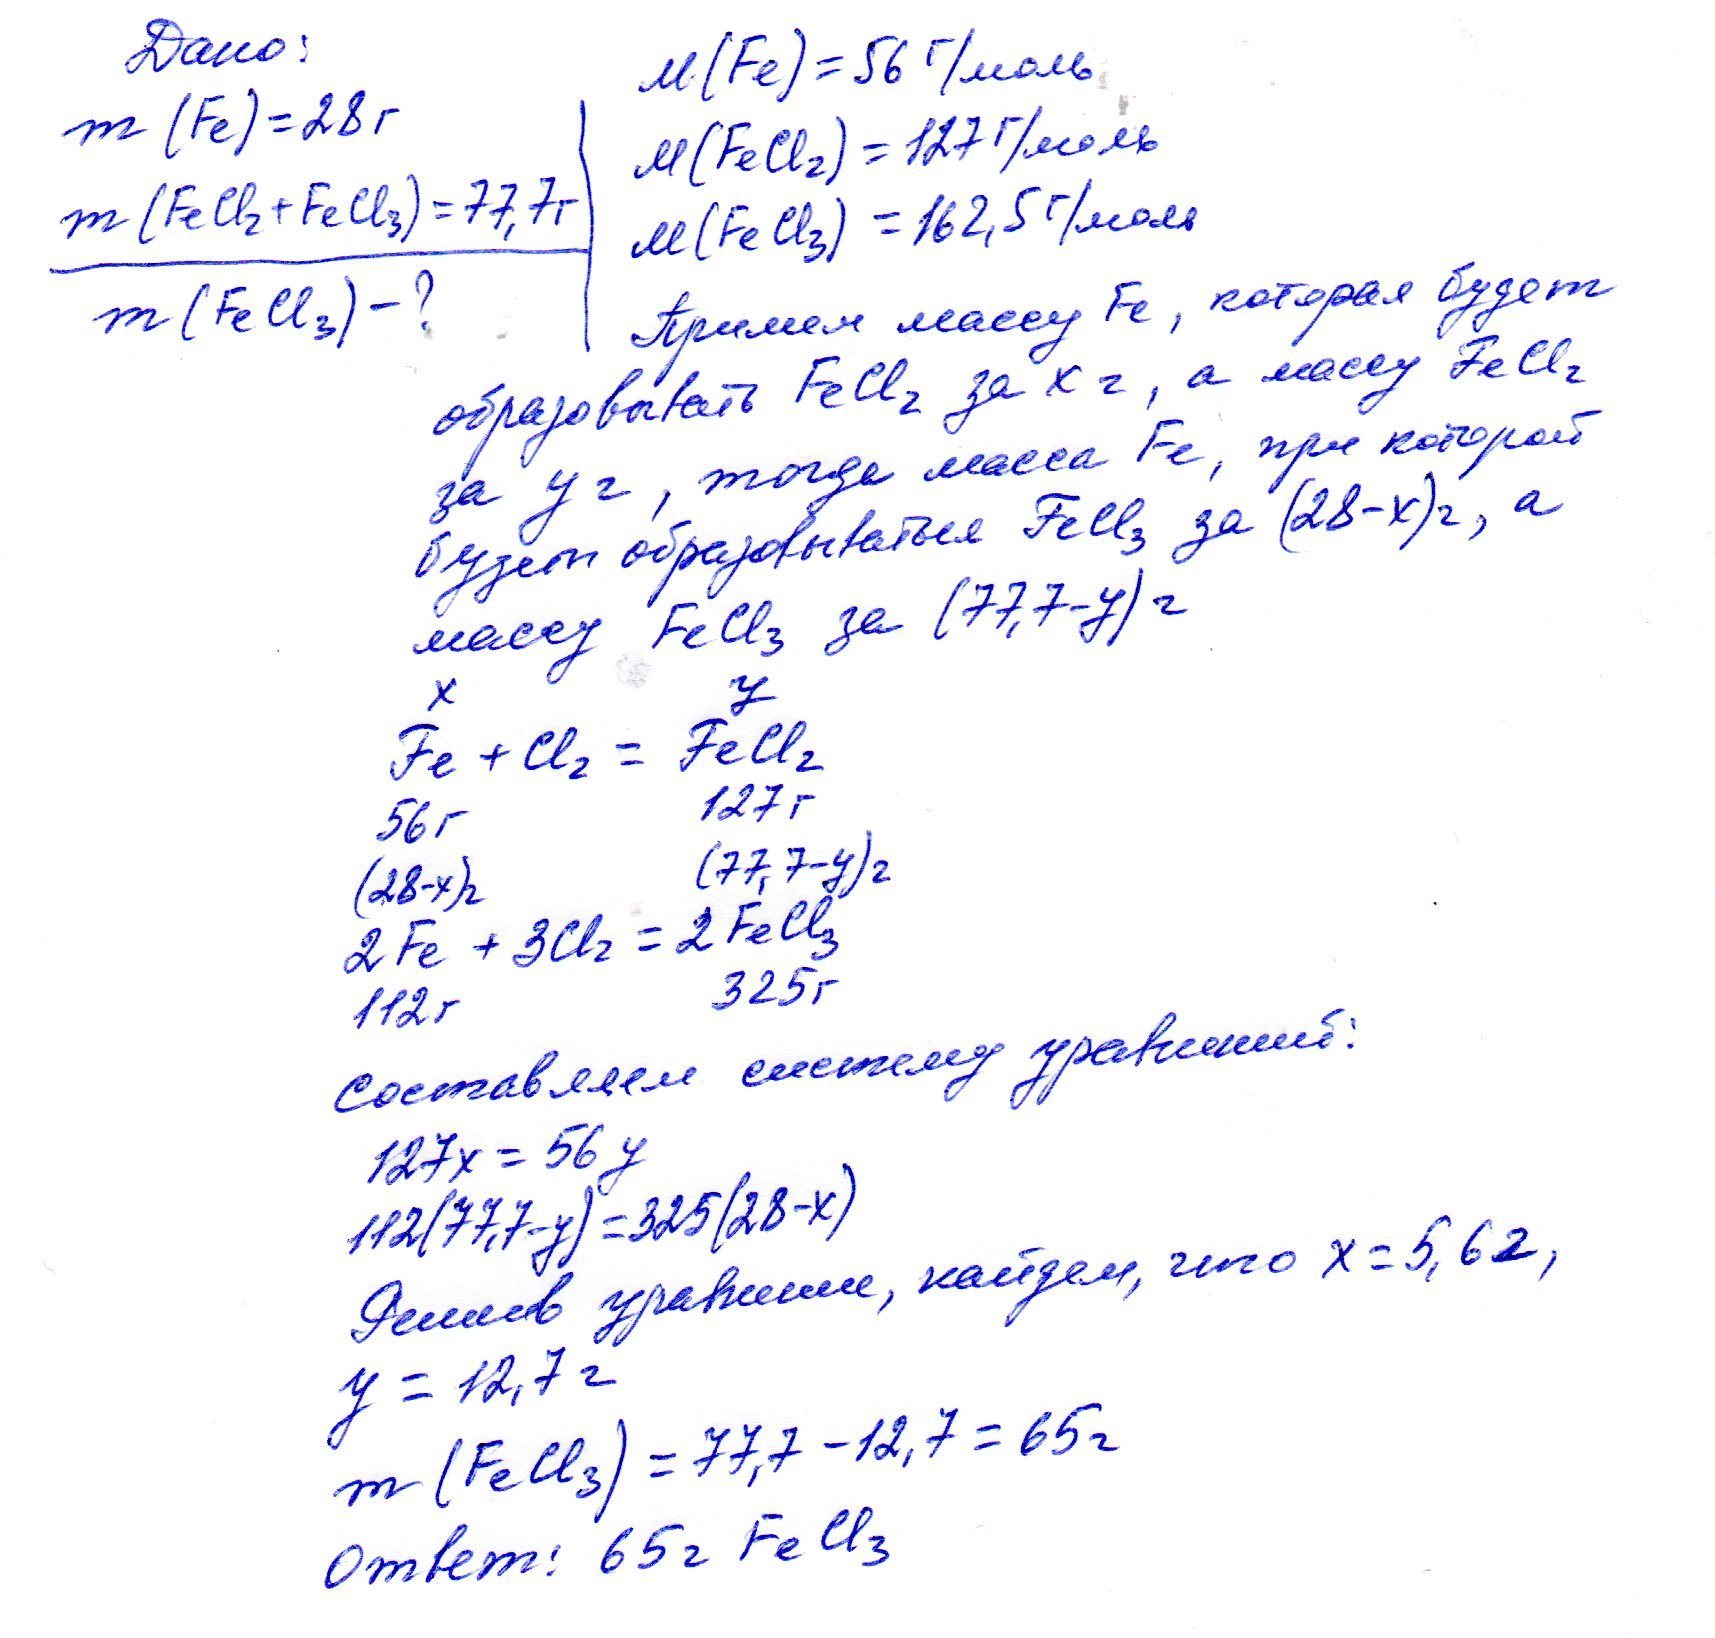 Дано:
m (Fe) = 28 г
m (FeCl₂ + FeCl₃) = 77,7 г
m (FeCl₃) - ?
M(Fe) = 56 г/моль
M(FeCl₂) = 127 г/моль
M(FeCl₃) = 162,5 г/моль
Примем массу Fe, которая будет
образовывать FeCl₂ за x г, а массу FeCl₂
за y г, тогда масса Fe, при которой
будет образовываться FeCl₃ за (28-x) г, а
массу FeCl₃ за (77,7-y) г
x y
Fe + Cl₂ = FeCl₂
56 г 127 г
(28-x) г (77,7-y) г
2Fe + 3Cl₂ = 2FeCl₃
112 г 325 г
Составляем систему уравнений:
127x = 56y
112(77,7-y) = 325(28-x)
Решив уравнения, найдем, что x = 5,6 г,
y = 12,7 г
m (FeCl₃) = 77,7 - 12,7 = 65 г
Ответ: 65 г FeCl₃